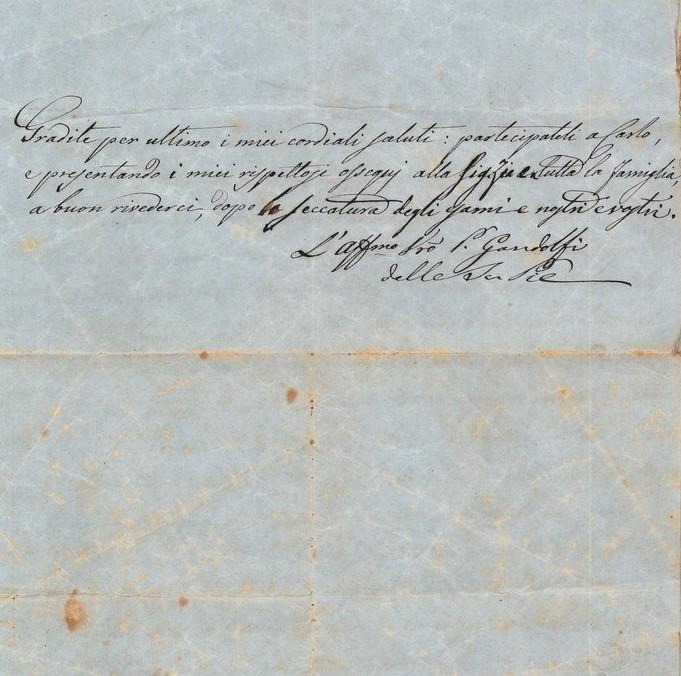 Gradite per ultimo i miei cordiali saluti: partecipateli a Carlo,
e presentando i miei rispettosi ossequj alla Sig. Zia e tutta la famiglia,
a buon rivederci, dopo la seccatura degli esami e nostri e vostri.
L'affmo Vro P. Gandolfi
delle Pie